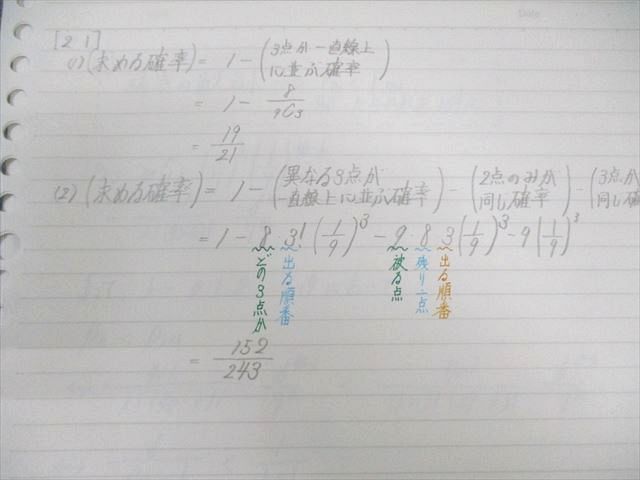 [21]
(1) (求める確率) = 1 - (3点が一直線上に並ぶ確率)
= 1 - 8/9C3
= 19/21
(2) (求める確率) = 1 - (異なる3点が一直線上に並ぶ確率) - (2点のみが同じ確率) - (3点が同じ確
= 1 - 8・3!(1/9)^3 - 9・8・3(1/9)^3 - 9(1/9)^3
どの3点か
出る順番
被る点
残り一点
出る順番
= 152/243